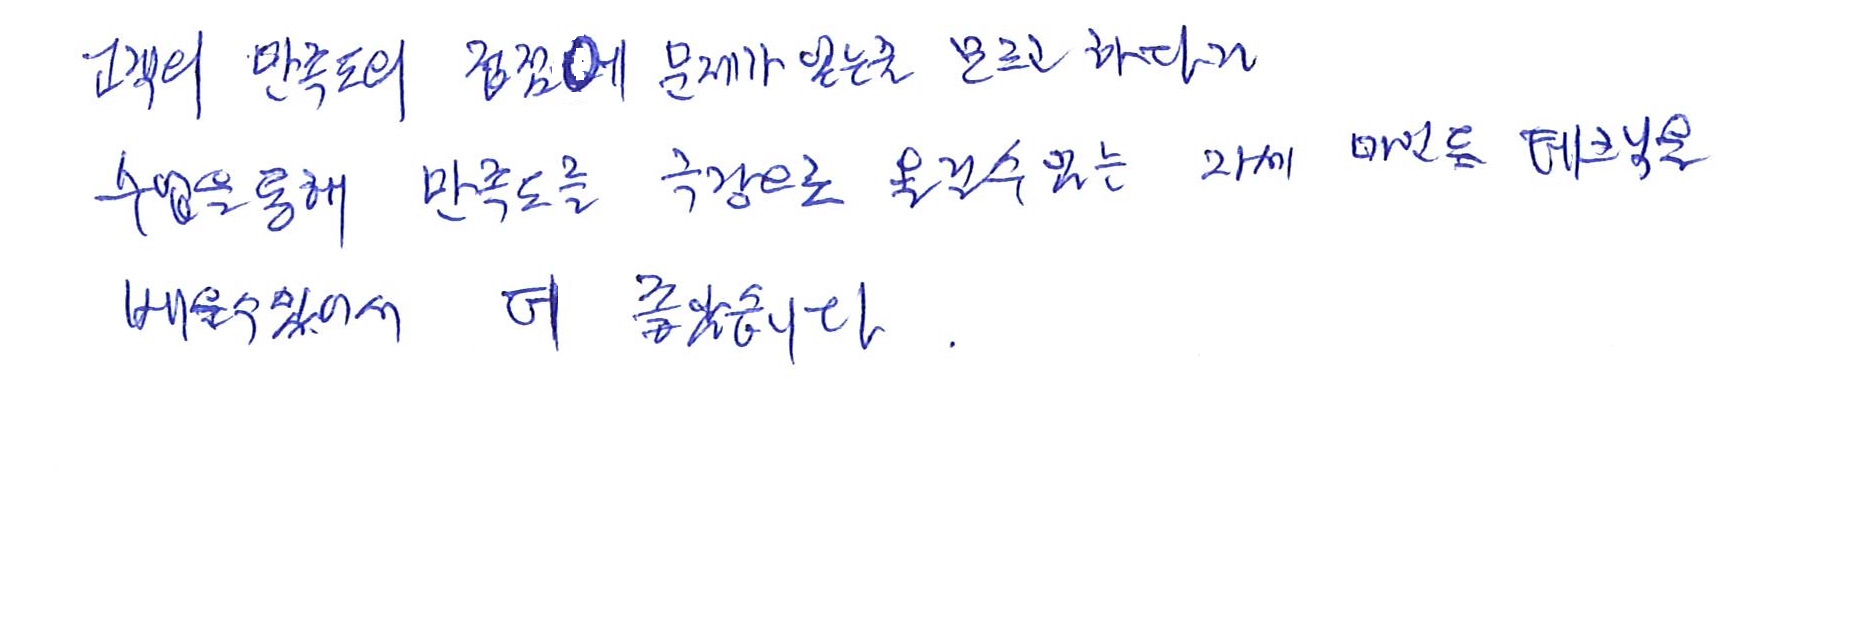 고객의 만족도의 접점에 문제가 있는줄 모르고 하다가
수업을 통해 만족도를 극강으로 올릴수 있는 자세 마인드 테크닉을
배울수있어서 더 좋았습니다.